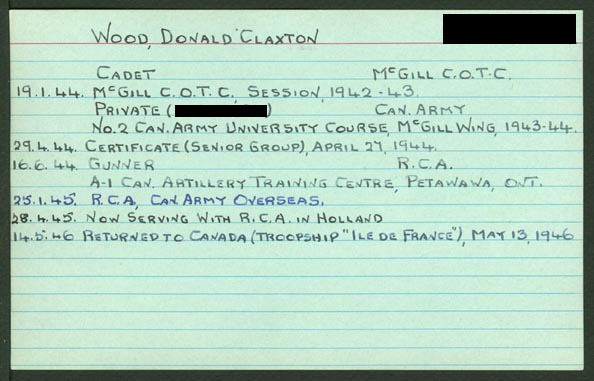 WOOD, DONALD CLAXTON
CADET McGILL C.O.T.C.
19.1.44. McGILL C.O.T.C. SESSION, 1942-43.
PRIVATE ( ) CAN. ARMY
No.2 CAN. ARMY UNIVERSITY COURSE, McGILL WING, 1943-44.
29.4.44. CERTIFICATE (SENIOR GROUP), APRIL 27, 1944.
16.6.44 GUNNER R.C.A.
A-1 CAN. ARTILLERY TRAINING CENTRE, PETAWAWA, ONT.
25.1.45. R.C.A, CAN ARMY OVERSEAS.
28.4.45. NOW SERVING WITH R.C.A. IN HOLLAND
14.5.46 RETURNED TO CANADA (TROOPSHIP "ILE DE FRANCE"), MAY 13, 1946